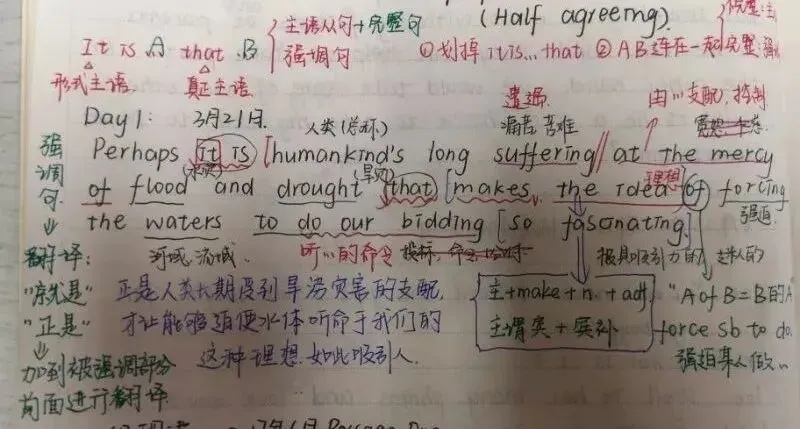 主语从句+完整句 (Half agreeing).
It is A that B 强调句 ①划掉 it is...that ②AB连在一起
形式主语 真正主语
Day 1: 3月21日. 人类(总称) 遭遇 痛苦 苦难 由...支配,控制
强调句 Perhaps it is [humankind's long suffering// at the mercy
of flood (水涝) and drought (旱灾) (that) [makes the idea 理想 of forcing 强迫
the waters to do our bidding [so fascinating]
翻译: 河域.流域. 听...的命令 极具吸引力的 迷人的
"就是" 正是人类长期受到旱涝灾害的支配, 主+make+n+adj "A of B=B的A
"正是" 才让能够迫使水体听命于我们的 主谓宾+宾补 force sb to do.
加到被强调部分 这种理想.如此吸引人. 强迫某人做...
前面进行翻译